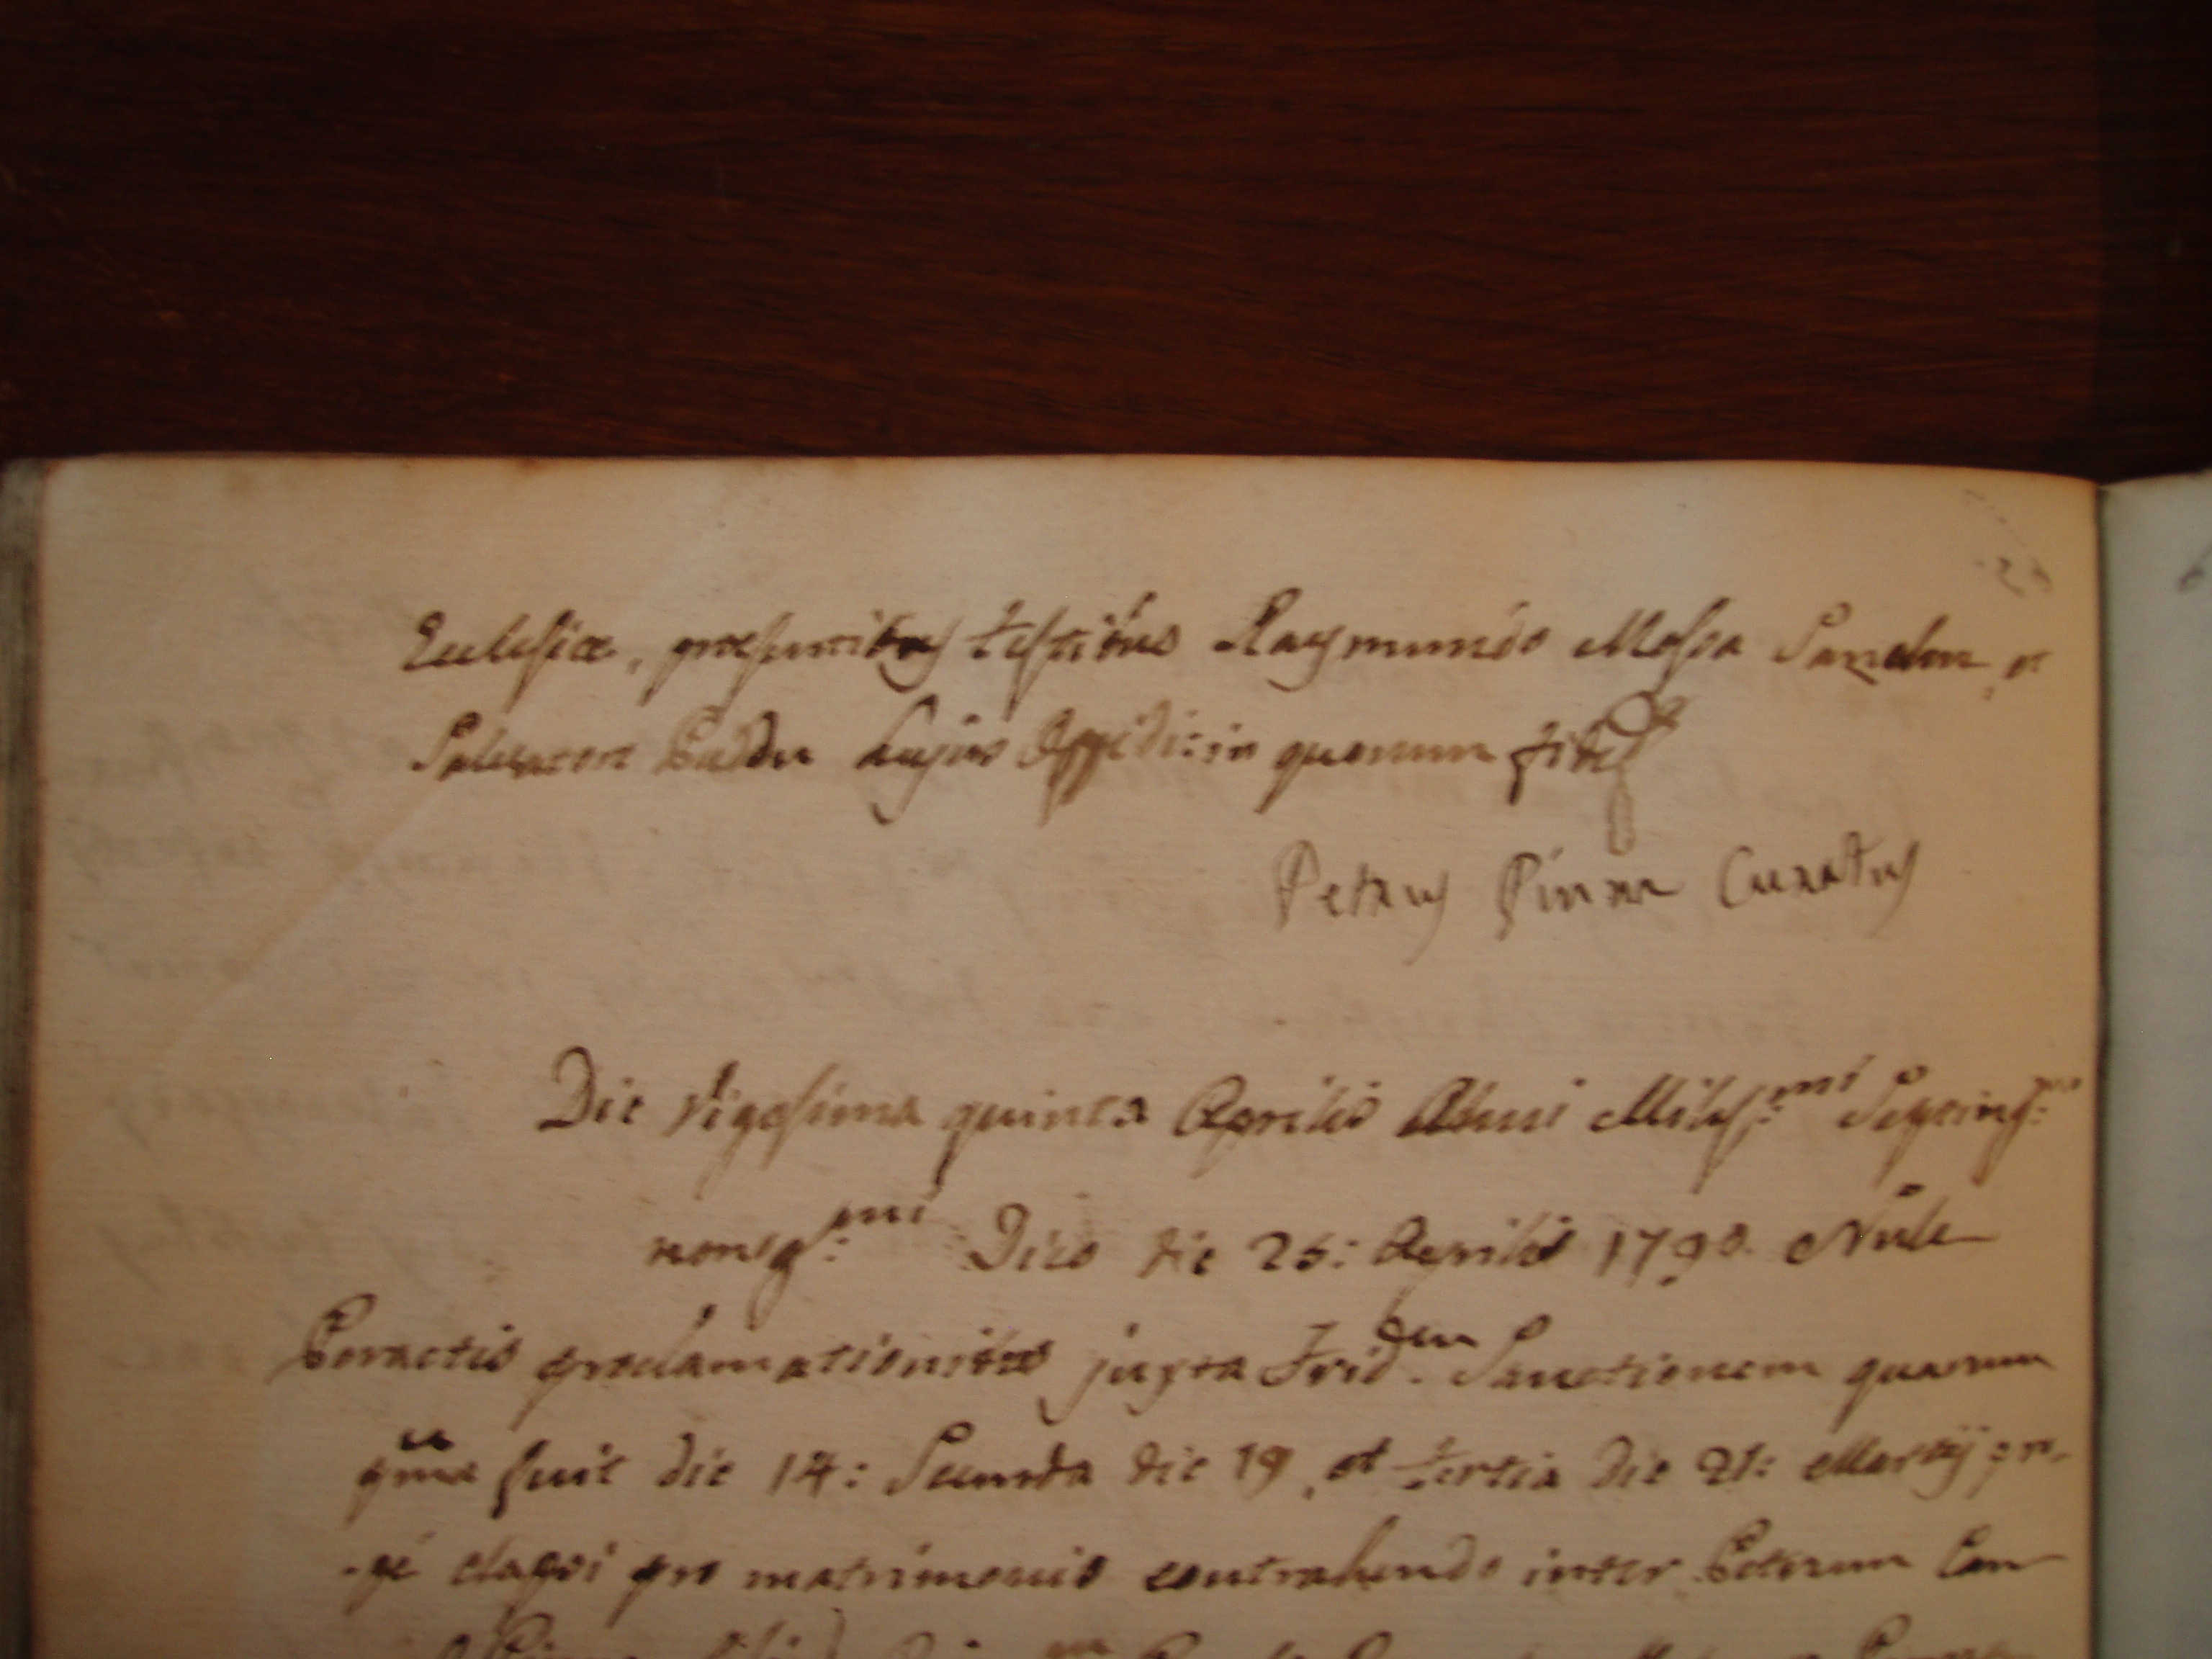 Eclesiæ, præsentibus testibus Raymundo Mossa Sanchu, et
Salvatore Puddu hujus Oppidi: in quorum fidem
Petrus Pinna Curatus
Die Vigesima quinta Aprilis Anni Miless:mi Septing:mi
nonag:mi Dico die 25: Aprilis 1790. Nule
Peractis proclamationibus juxta Trid.dem Sanctionem quarum
pma fuit die 14: Secunda die 19, et tertia die 21: Martij pro-
-pe elapsi pro matrimonio contrahendo inter Petrum